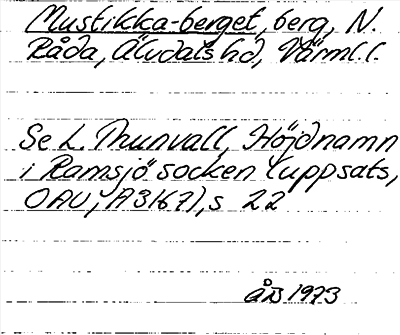 Mustikka-berget, berg, N.
Råda, Älvdals hd, Värml. l.
Se L. Thunvall, Höjdnamn
i Ramsjö socken (uppsats,
OAU, A3167), s 22
åD 1973